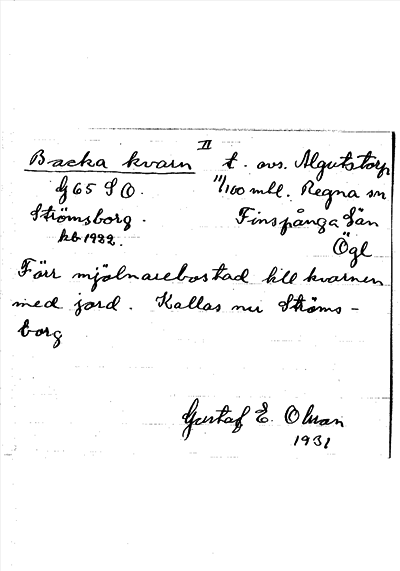 II
Backa kvarn t. avs. Algutstorp
Gj 65 S O. 11/100 mtl. Regna sn
Strömsborg. Finspånga län
kb 1922. Ögl
Förr mjölnarebostad till kvarnen
med jord. Kallas nu Ströms-
borg
Gustaf E. Olson
1931